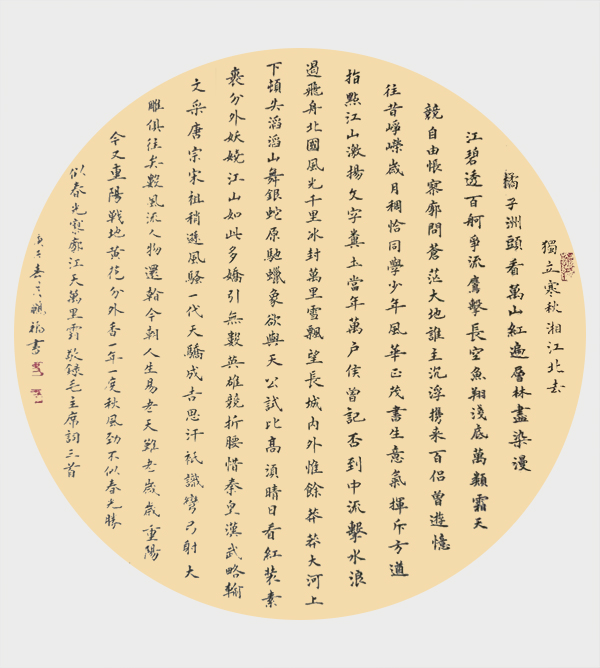 獨立寒秋湘江北去
橘子洲頭看萬山紅遍層林盡染漫
江碧透百舸爭流鷹擊長空魚翔淺底萬類霜天
競自由悵寥廓問蒼茫大地誰主沉浮攜來百侶曾遊憶
往昔崢嶸歲月稠恰同學少年風華正茂書生意氣揮斥方遒
指點江山激揚文字糞土當年萬戶侯曾記否到中流擊水浪
遏飛舟北國風光千里冰封萬里雪飄望長城內外惟餘莽莽大河上
下頓失滔滔山舞銀蛇原馳蠟象欲與天公試比高須晴日看紅裝素
裹分外妖嬈江山如此多嬌引無數英雄競折腰惜秦皇漢武略輸
文采唐宗宋祖稍遜風騷一代天驕成吉思汗祇識彎弓射大
雕俱往矣數風流人物還今朝人生易老天難老歲歲重陽
今又重陽戰地黃花分外香一年一度秋風勁不似春光勝
似春光寥廓江天萬里霜敬錄毛主席詞三首
書